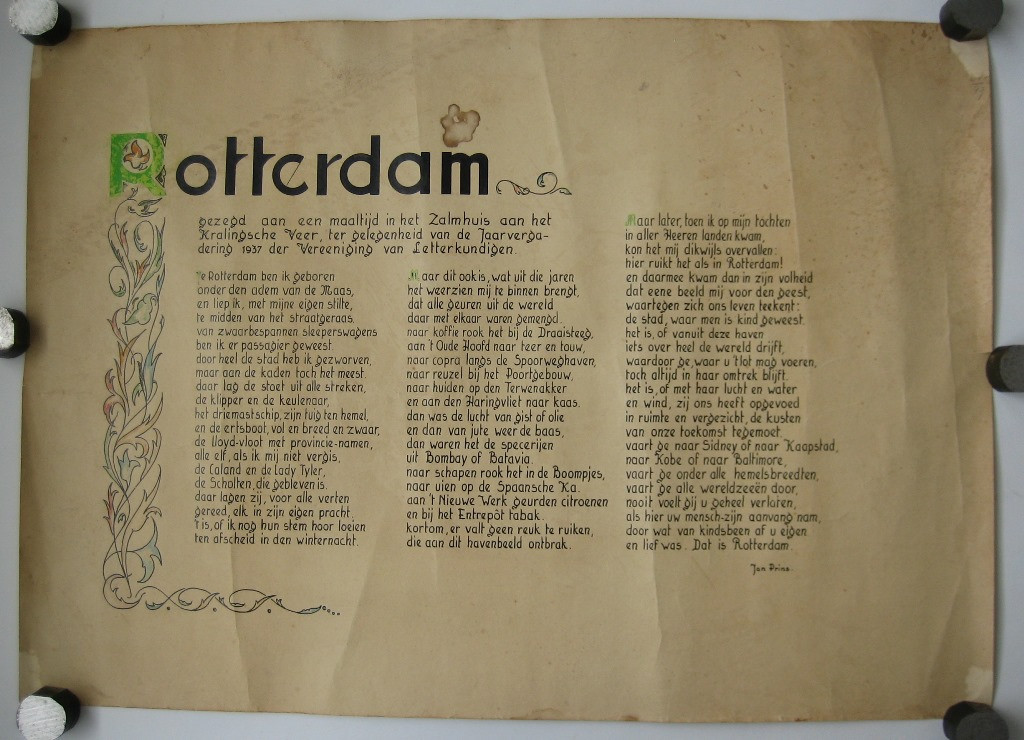 Rotterdam
gezegd aan een maaltijd in het Zalmhuis aan het
Kralingsche Veer, ter gelegenheid van de Jaarverga-
dering 1937 der Vereeniging van Letterkundigen.
Te Rotterdam ben ik geboren
onder den adem van de Maas,
en liep ik, met mijne eigen stilte,
te midden van het straatgeraas.
van zwaarbespannen sleeperswagens
ben ik er passagier geweest.
door heel de stad heb ik gezworven,
maar aan de kaden toch het meest.
daar lag de stoet uit alle streken,
de klipper en de keulenaar,
het driemastschip, zijn tuig ten hemel,
en de ertsboot, vol en breed en zwaar,
de Lloyd-vloot met provincie-namen,
alle elf, als ik mij niet vergis,
de Caland en de Lady Tyler,
de Scholten, die gebleven is.
daar lagen zij, voor alle verten
gereed, elk in zijn eigen pracht.
't is, of ik nog hun stem hoor loeien
ten afscheid in den winternacht.
Maar dit ook is, wat uit die jaren
het weerzien mij te binnen brengt,
dat alle geuren uit de wereld
daar met elkaar waren gemengd.
naar koffie rook het bij de Draaisteeg,
aan 't Oude Hoofd naar teer en touw,
naar copra langs de Spoorweghaven,
naar reuzel bij het Poortgebouw,
naar huiden op den Terwenakker
en aan den Haringvliet naar kaas.
dan was de lucht van gist of olie
en dan van jute weer de baas,
dan waren het de specerijen
uit Bombay of Batavia.
naar schapen rook het in de Boompjes,
naar uien op de Spaansche Ka.
aan 't Nieuwe Werk geurden citroenen
en bij het Entrepôt tabak.
kortom, er valt geen reuk te ruiken,
die aan dit havenbeeld ontbrak.
Maar later, toen ik op mijn tochten
in aller Heeren landen kwam,
kon het mij dikwijls overvallen:
hier ruikt het als in Rotterdam!
en daarmee kwam dan in zijn volheid
dat eene beeld mij voor den geest,
waartegen zich ons leven teekent:
de stad, waar men is kind geweest.
het is, of vanuit deze haven
iets over heel de wereld drijft,
waardoor ge, waar u 't lot mag voeren,
toch altijd in haar omtrek blijft.
het is, of met haar lucht en water
en wind, zij ons heeft opgevoed
in ruimte en vergezicht, de kusten
van onze toekomst tegemoet.
vaart ge naar Sidney of naar Kaapstad,
naar Kobe of naar Baltimore,
vaart ge onder alle hemelsbreedten,
vaart ge alle wereldzeeën door,
nooit voelt gij u geheel verlaten,
als hier uw mensch-zijn aanvang nam,
door wat van kindsbeen af u eigen
en lief was. Dat is Rotterdam.
Jan Prins.